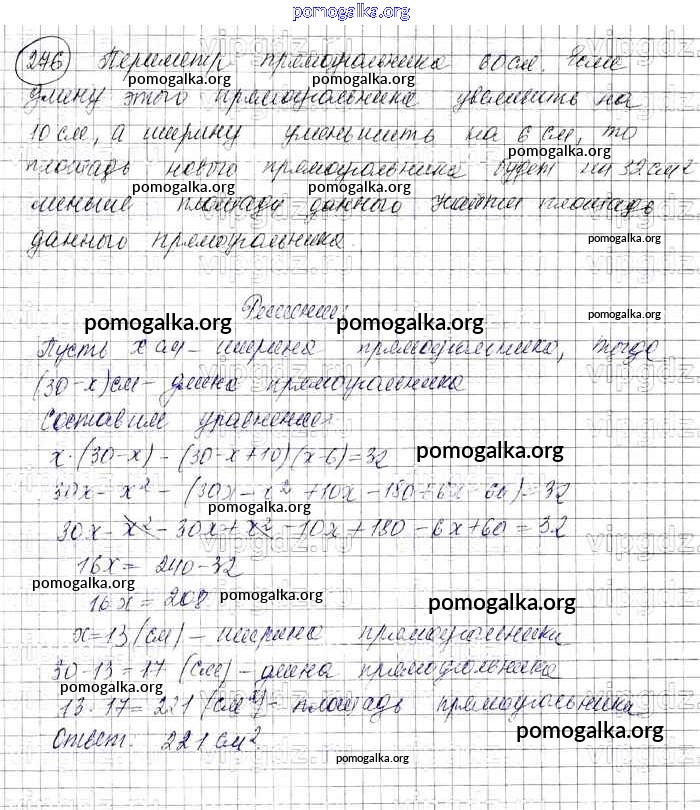 pomogalka.org
276 Периметр прямоугольника 60 см. Если
pomogalka.org pomogalka.org
длину этого прямоугольника увеличить на
10 см, а ширину уменьшить на 6 см, то
pomogalka.org
площадь нового прямоугольника будет на 32 см²
pomogalka.org pomogalka.org
меньше площади данного. Найти площадь
данного прямоугольника.
pomogalka.org
Решение:
pomogalka.org pomogalka.org
Пусть x см - ширина прямоугольника, тогда
(30-x) см - длина прямоугольника
Составим уравнение:
x·(30-x) - (30-x+10)(x-6)=32
pomogalka.org
30x - x² - (30x - x² + 10x - 180 + 6x - 60) = 32
pomogalka.org
30x - x² - 30x + x² - 10x + 180 - 6x + 60 = 32
16x = 240-32
pomogalka.org
16x = 208
pomogalka.org pomogalka.org
x=13 (см) - ширина прямоугольника
30-13=17 (см) - длина прямоугольника
pomogalka.org
13·17=221 (см²) - площадь прямоугольника
pomogalka.org
Ответ. 221 см²
pomogalka.org